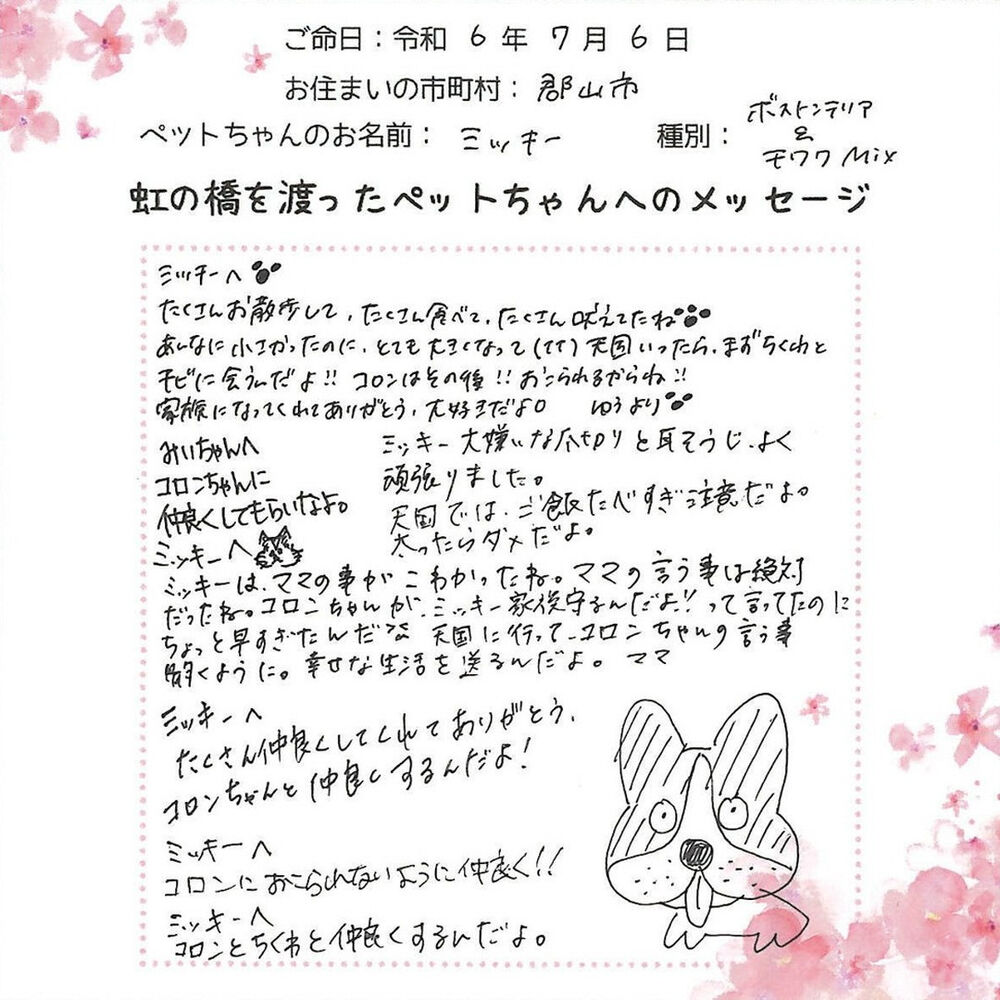 ご命日：令和 6 年 7 月 6 日
お住まいの市町村：郡山市
ペットちゃんのお名前：ミッキー 種別：ボストンテリア
&
チワワ Mix
虹の橋を渡ったペットちゃんへのメッセージ
ミッキーへ
たくさんお散歩して、たくさん食べて、たくさん吠えてたね
あんなに小さかったのに、とても大きくなって(TT) 天国いったら、まずちくわと
チビに会うんだよ!! コロンはその後!! おこられるからね!!
家族になってくれてありがとう、大好きだよ○ ゆうより
みいちゃんへ
コロンちゃんに
仲良くしてもらいなよ。
ミッキー大嫌いな爪切りと耳そうじ、よく
頑張りました。
天国では、ご飯たべすぎ注意だよ。
太ったらダメだよ。
ミッキーへ
ミッキーは、ママの事がこわかったね。ママの言う事は絶対
だったね。コロンちゃんが、ミッキー家後守るんだよ!! って言ってたのに
ちょっと早すぎたんだ 天国に行って、コロンちゃんの言う事
聞くように。幸せな生活を送るんだよ。ママ
ミッキーへ
たくさん仲良くしてくれてありがとう、
コロンちゃんと仲良くするんだよ!
ミッキーへ
コロンにおこられないように仲良く!!
ミッキーへ
コロンとちくわと仲良くするんだよ。